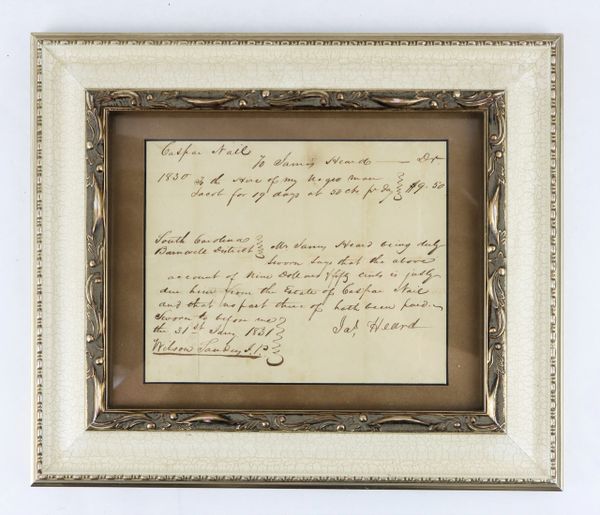 Caspar Nail
To James Heard — Dr
1830 To the hire of my Negro man
Jacob for 19 days at 50 cts pr dy $9.50
South Carolina
Barnwell District
Mr James Heard being duly
Sworn Says that the above
account of Nine Dollars & fifty cents is justly
due him from the Estate of Caspar Nail
and that no part there of hath been paid.
Sworn to before me
the 31st Jany 1831
Jas Heard
Wilson J.P.